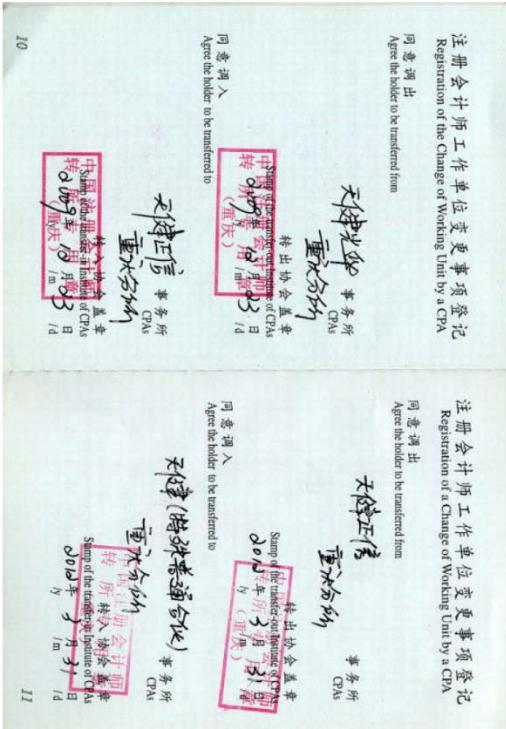 注册会计师工作单位变更事项登记
Registration of the Change of Working Unit by a CPA
同意调出
Agree the holder to be transferred from
天健光华
重庆分所
事务所
CPAs
转出协会盖章
Stamp of the transfer-out Institute of CPAs
2009年12月23日
/y /m /d
中国注册会计师
转所专用章
(重庆)
同意调入
Agree the holder to be transferred to
天健正信
重庆分所
事务所
CPAs
转入协会盖章
Stamp of the transfer-in Institute of CPAs
2009年12月23日
/y /m /d
中国注册会计师
转所专用章
(重庆)
10
注册会计师工作单位变更事项登记
Registration of a Change of Working Unit by a CPA
同意调出
Agree the holder to be transferred from
天健正信
重庆分所
事务所
CPAs
转出协会盖章
Stamp of the transfer-out Institute of CPAs
2012年3月31日
/y /m /d
(重庆)
同意调入
Agree the holder to be transferred to
天健(特殊普通合伙)
重庆分所
事务所
CPAs
转入协会盖章
Stamp of the transfer-in Institute of CPAs
2012年3月31日
/y /m /d
中国注册会计师
11